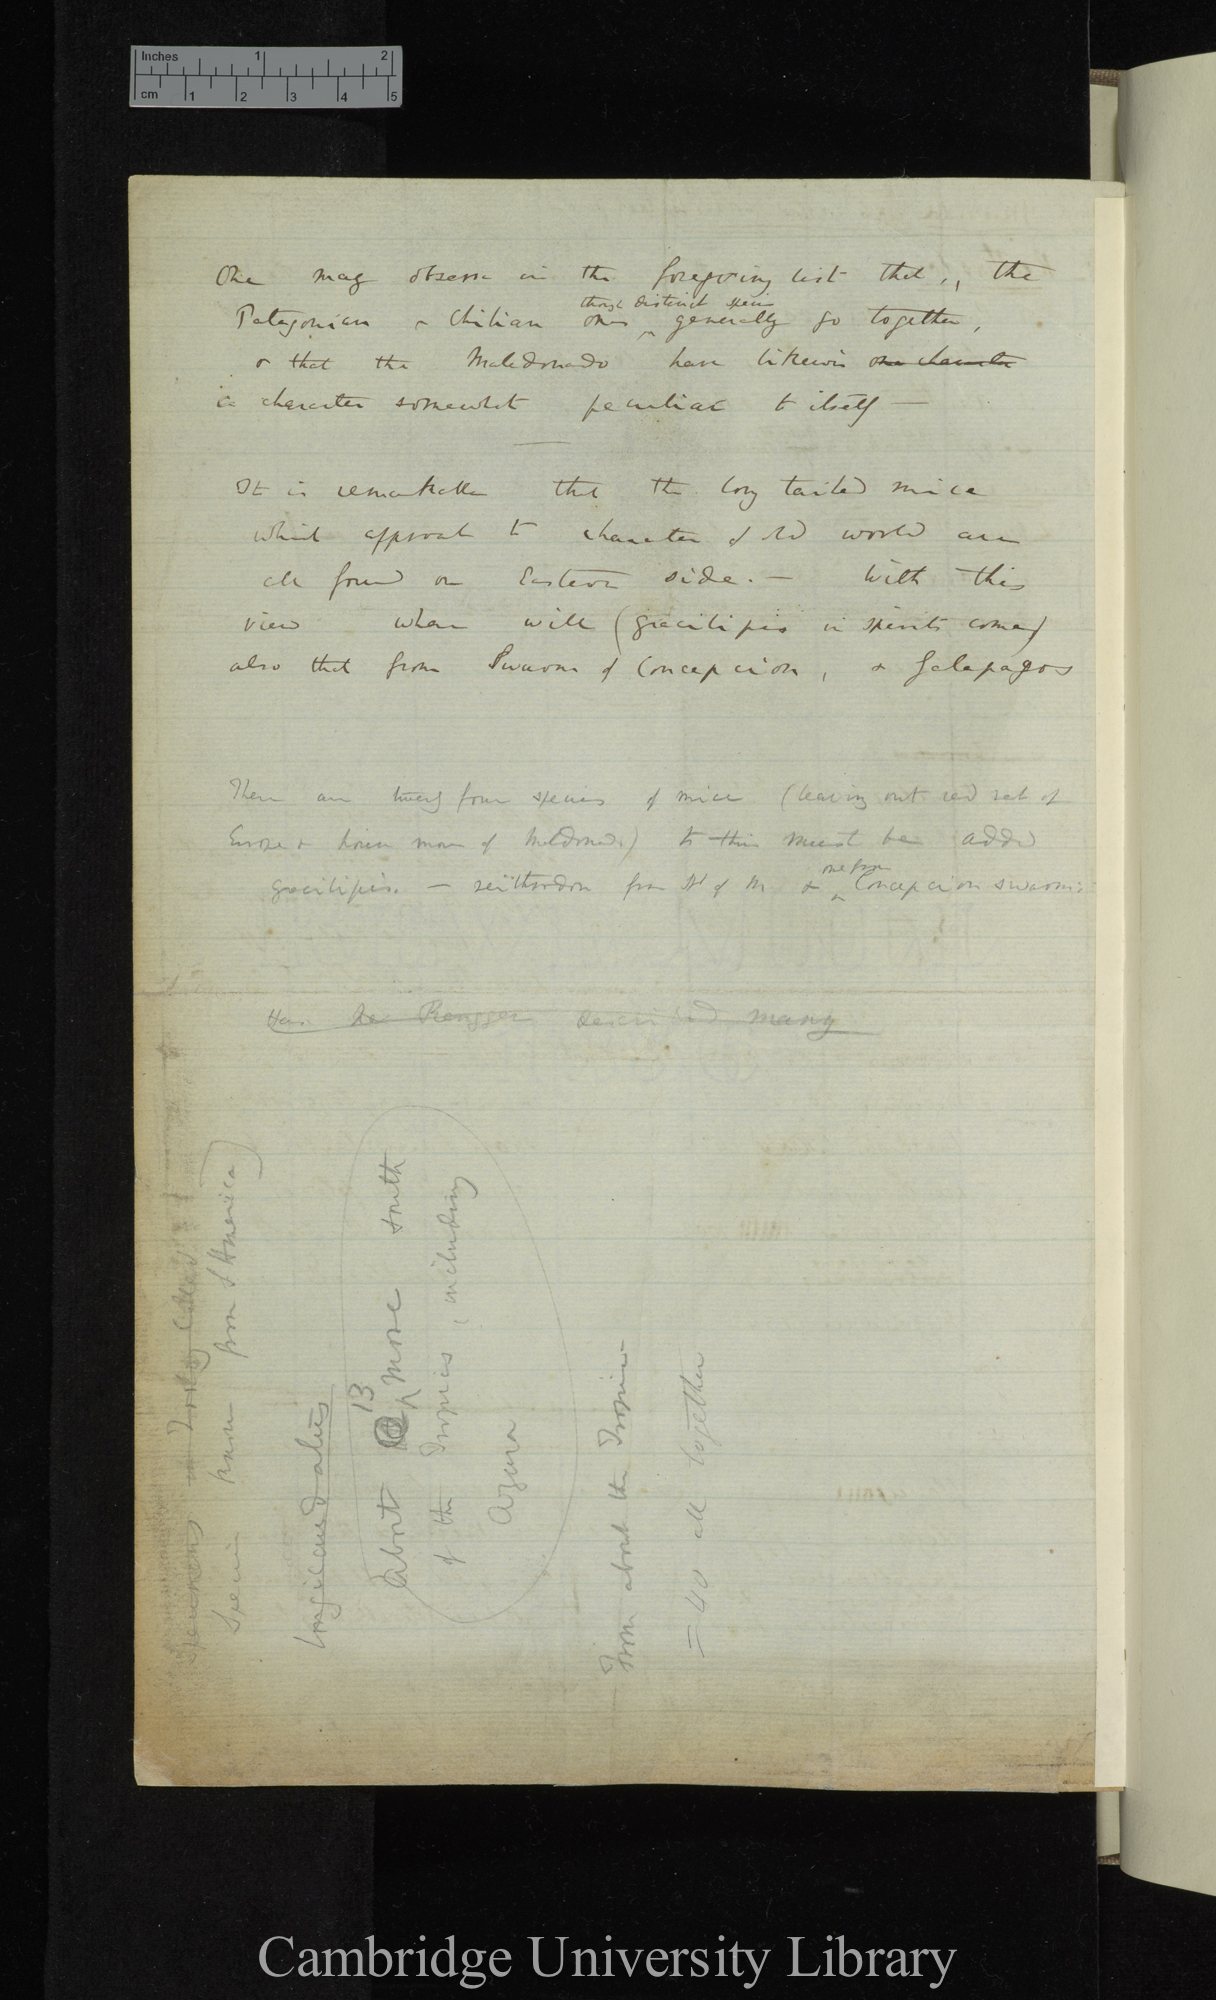 Inches 1 2
cm 1 2 3 4 5
One may observe in the foregoing list that, the
though distinct species
Patagonian & Chilian ones ^ generally go together,
& that the Maldonado have likewise one character
a character somewhat peculiar to itself —
It is remarkable that the long tailed mice
which approach to character of old world are
all found on Eastern side. — With this
view where will (gracilipes in spirits come)
also that from Swarms of Concepcion, & Galapagos
There are twenty four species of mice (leaving out red rat of
Europe & house mouse of Maldonado) to this must be added
one from
gracilipes. — reithrodon from St of M & ^ Concepcion swarms.
Has he Rengger described many
Specimens in
Species known from S America)
longicaudatus
13
About ^ more south
of the Tropics, including
Azara
From about the Tropics
= 40 all together
Cambridge University Library